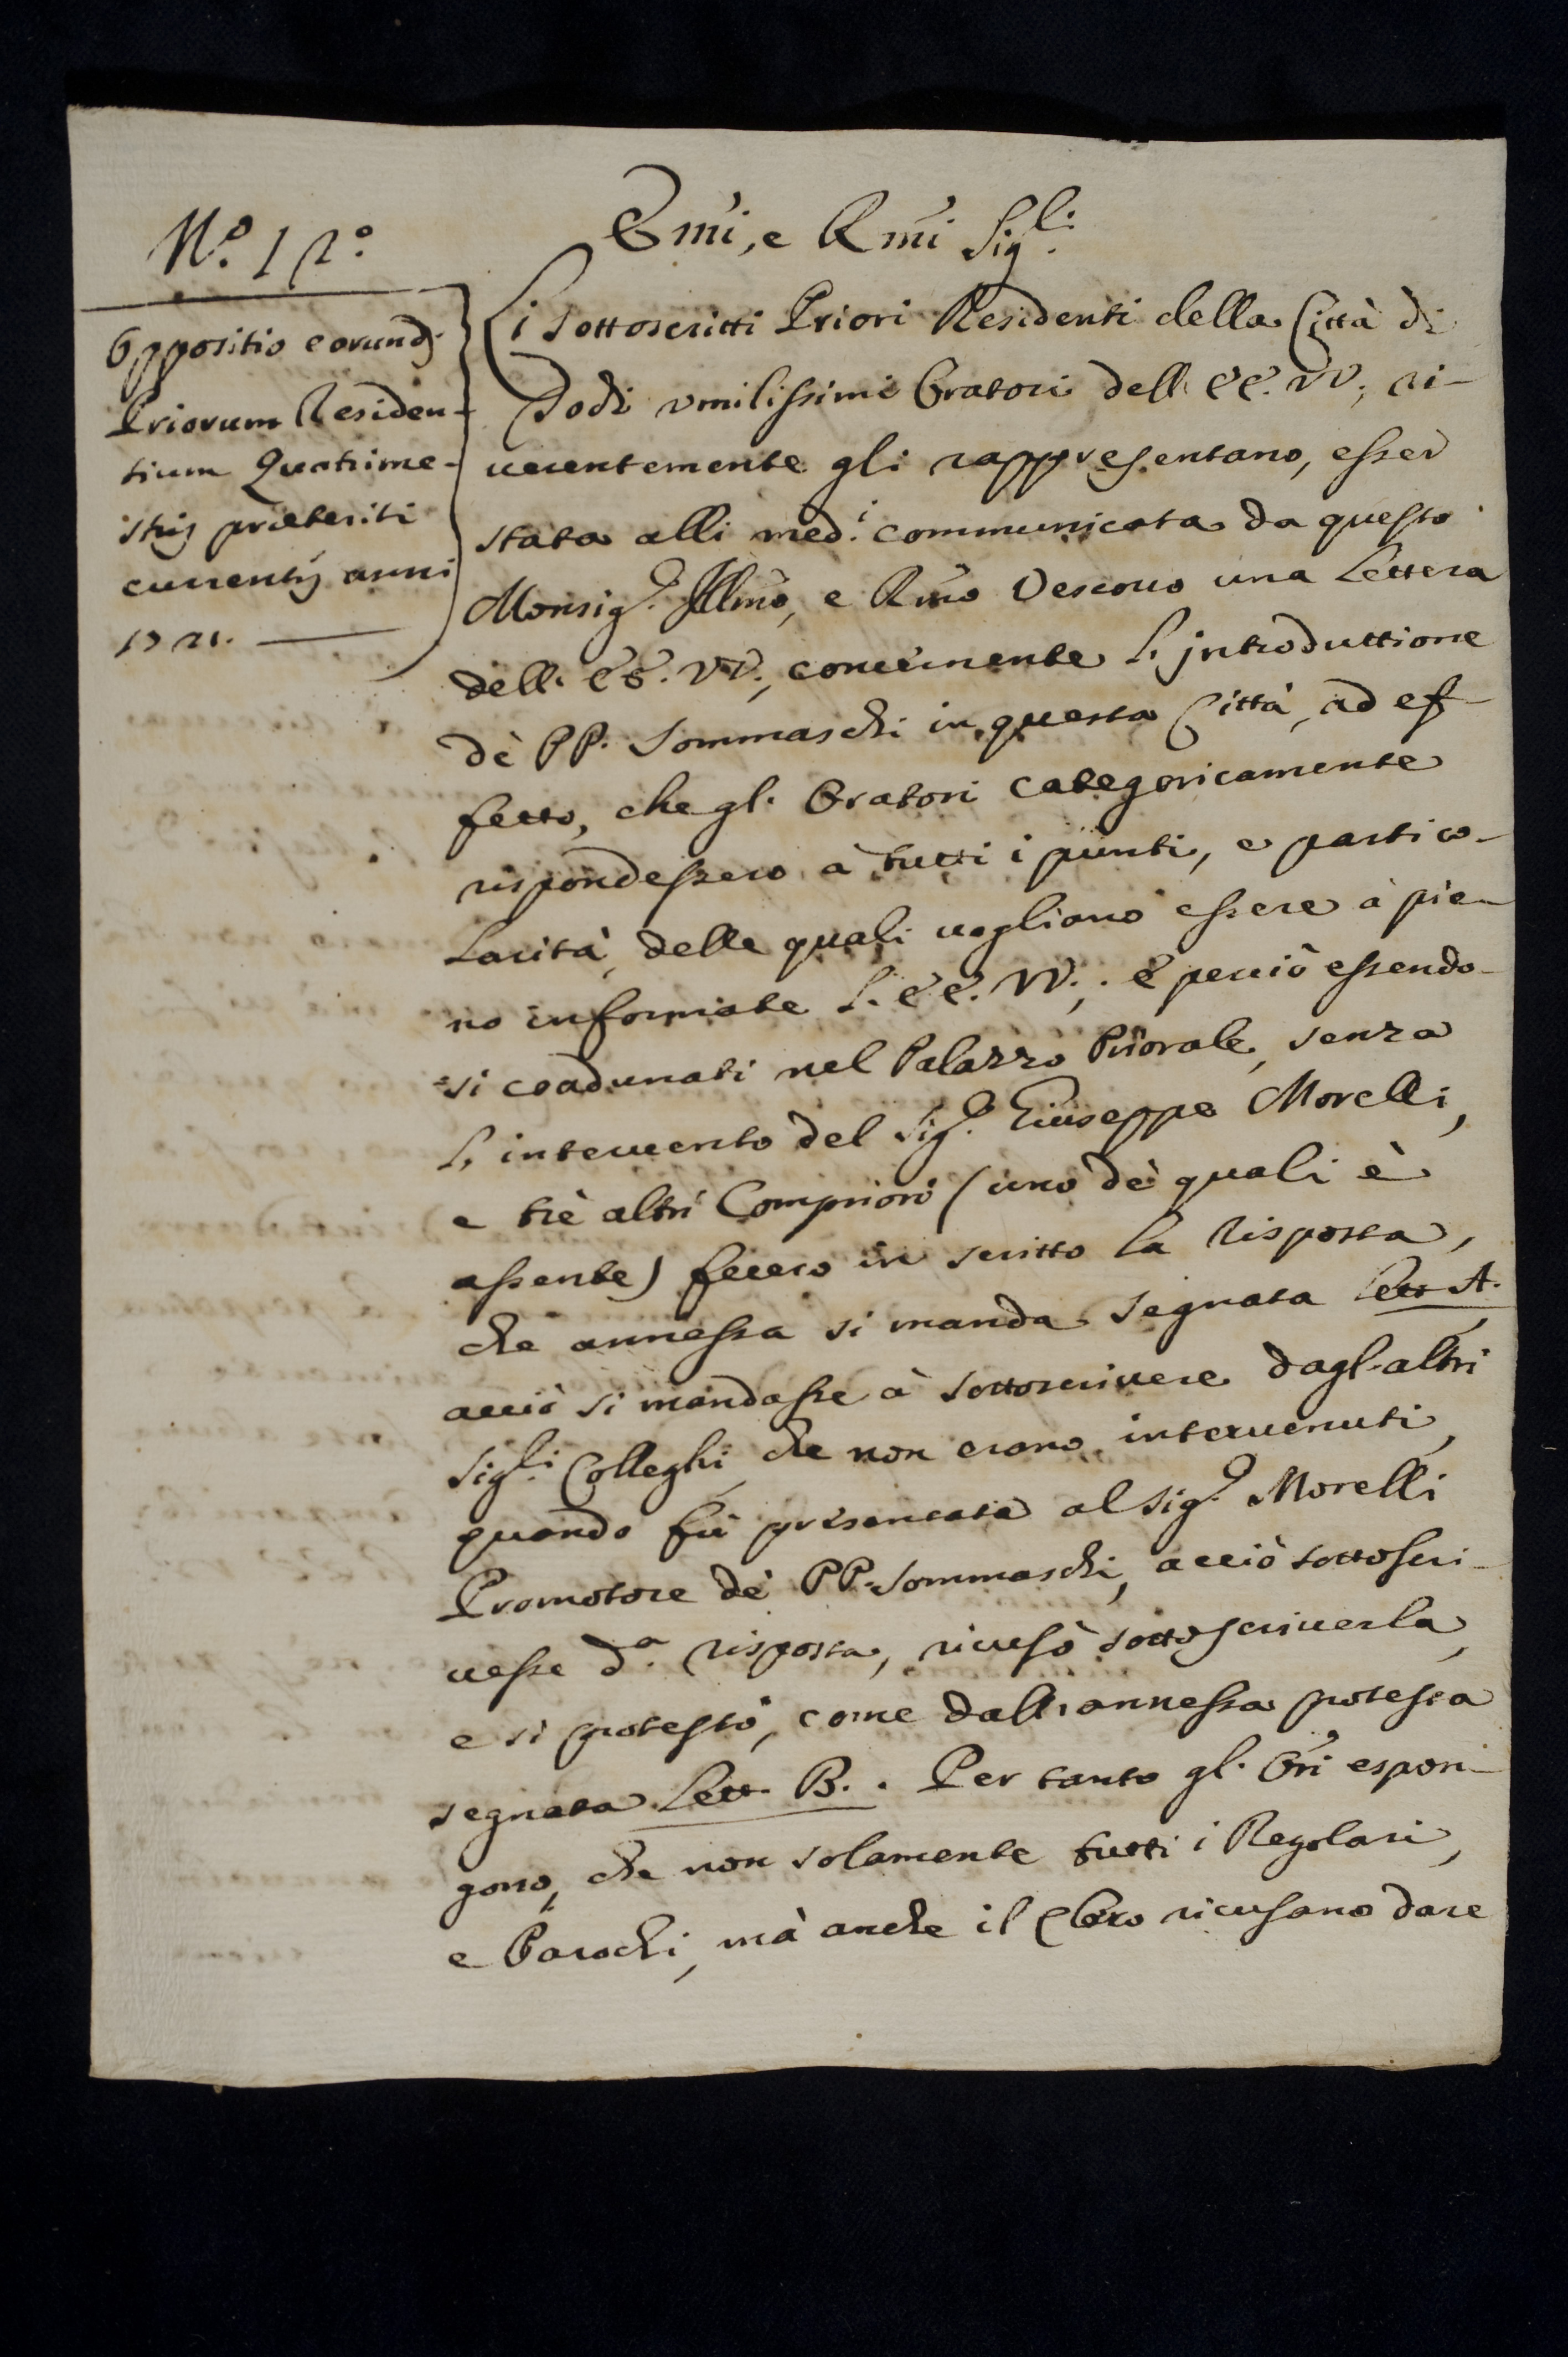 N.º 12º
Oppositio eorund.
Priorum Residen-
tium Quatrime-
stris præteriti
currentis anni
1721.
Emi, e Rmi Sig.li
Li sottoscritti Priori Residenti della Città di
Todi umilissimi Oratori dell' EE. VV., ri-
uerentemente gli rappresentano, esser
stata alli med.i communicata da questo
Monsig.r Illmo, e Rmo Vescouo una Lettera
dell' EE. VV., concernente l'introduttione
dè PP. Sommaschi in questa Città, ad ef-
fetto, che gl' Oratori categoricamente
rispondessero à tutti i punti, e partico-
larità, delle quali uogliano essere à pie-
no informate l' EE. VV.; e perciò essendo-
=si coadunati nel Palazzo Priorale, senza
l'interuento del Sig.r Giuseppe Morelli,
e trè altri Compriori (uno dè quali è
assente) fecero in scritto la risposta,
che annessa si manda segnata Lett. A.
acciò si mandasse à sottoscriuere dagl'altri
Sig.li Colleghi, che non erano interuenuti,
quando fù presentata al Sig.r Morelli
Promotore dè PP. Sommaschi, acciò sottoscri-
uesse d.a risposta, ricusò sottoscriuerla,
e si protestò, come dall'annessa protesta
segnata Lett. B.. Per tanto gl' Ori espon-
gono, che non solamente tutti i Regolari,
e Parochi, mà anche il Clero ricusano dare